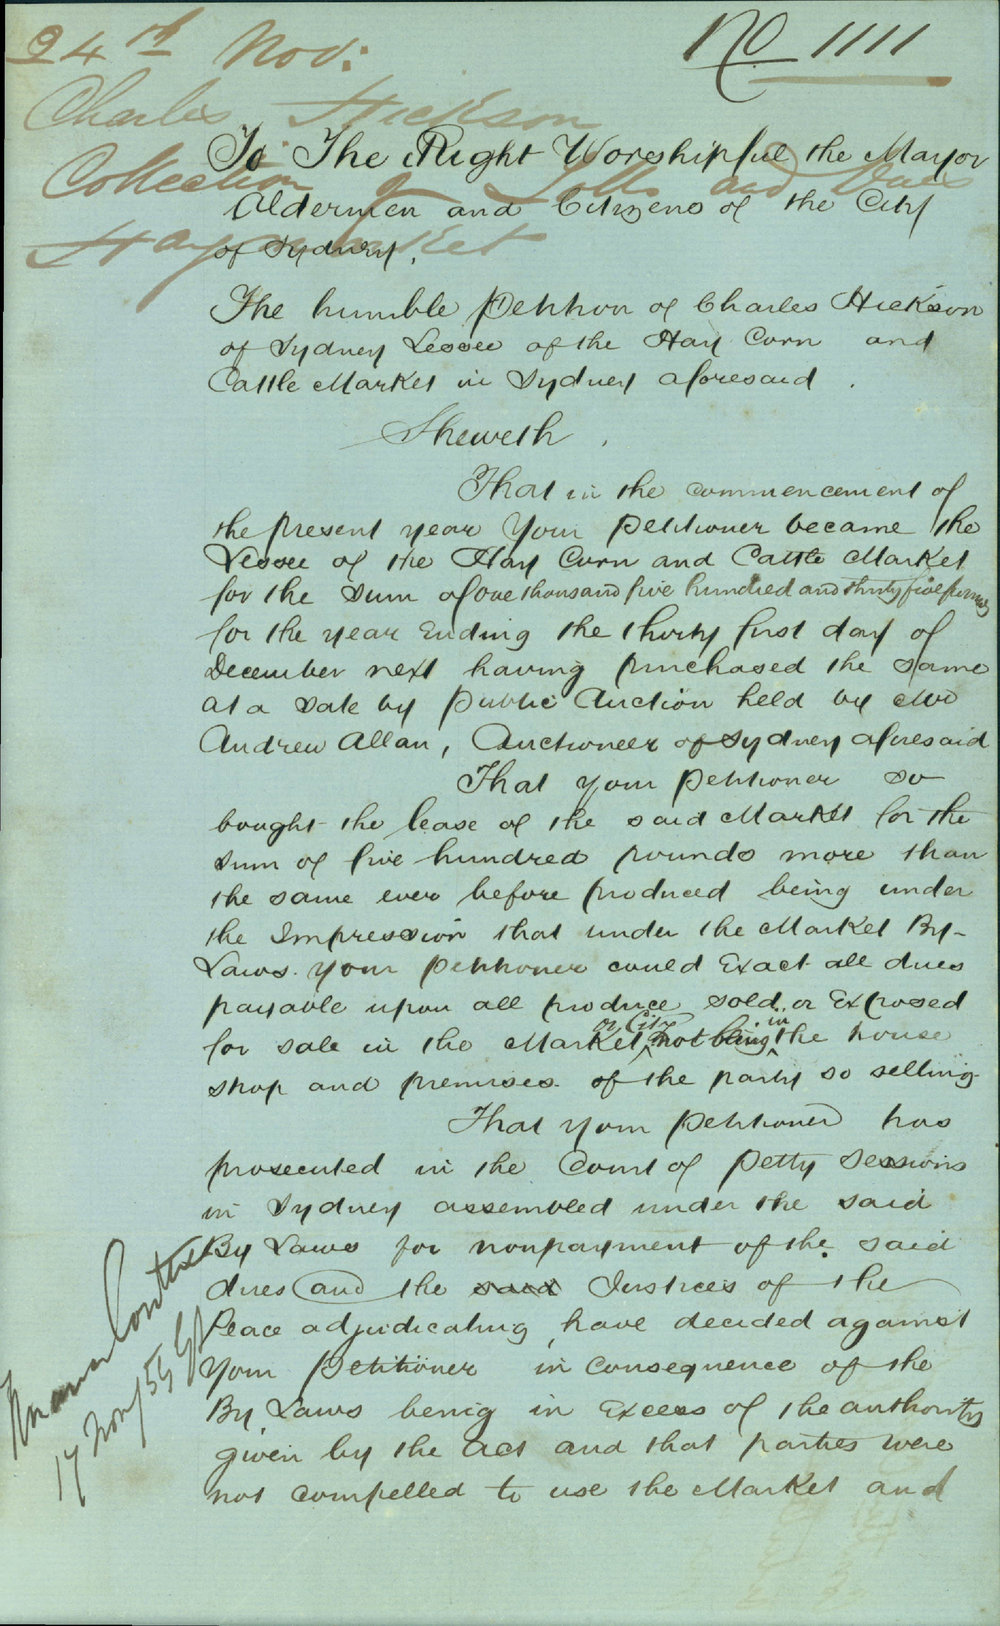 24th Nov:
No 1111
Charles Hickson
Collection of Tolls and Dues
Haymarket
To The Right Worshipful the Mayor
Aldermen and Citizens of the City
of Sydney.
The humble Petition of Charles Hickson
of Sydney Lessee of the Hay Corn and
Cattle Market in Sydney aforesaid.
Sheweth.
That in the commencement of
the present year Your Petitioner became the
Lessee of the Hay Corn and Cattle Market
for the sum of one thousand five hundred and thirty five pounds
for the year Ending the thirty first day of
December next having purchased the same
at a Sale by Public Auction held by Mr
Andrew Allan, Auctioneer of Sydney aforesaid
That your Petitioner so
bought the lease of the said Market for the
sum of five hundred pounds more than
the same ever before produced being under
the Impression that under the Market By-
Laws your petitioner could Exact all dues
payable upon all produce sold or Exposed
or City in
for sale in the Market, not being the house
shop and premises of the party so selling
That your Petitioner has
prosecuted in the Court of Petty Sessions
in Sydney assembled under the said
By Laws for nonpayment of the said
dues and the said Justices of the
Peace adjudicating have decided against
Your Petitioner in consequence of the
By Laws being in Excess of the authority
given by the act and that parties were
not compelled to use the Market and
17 Nov/55